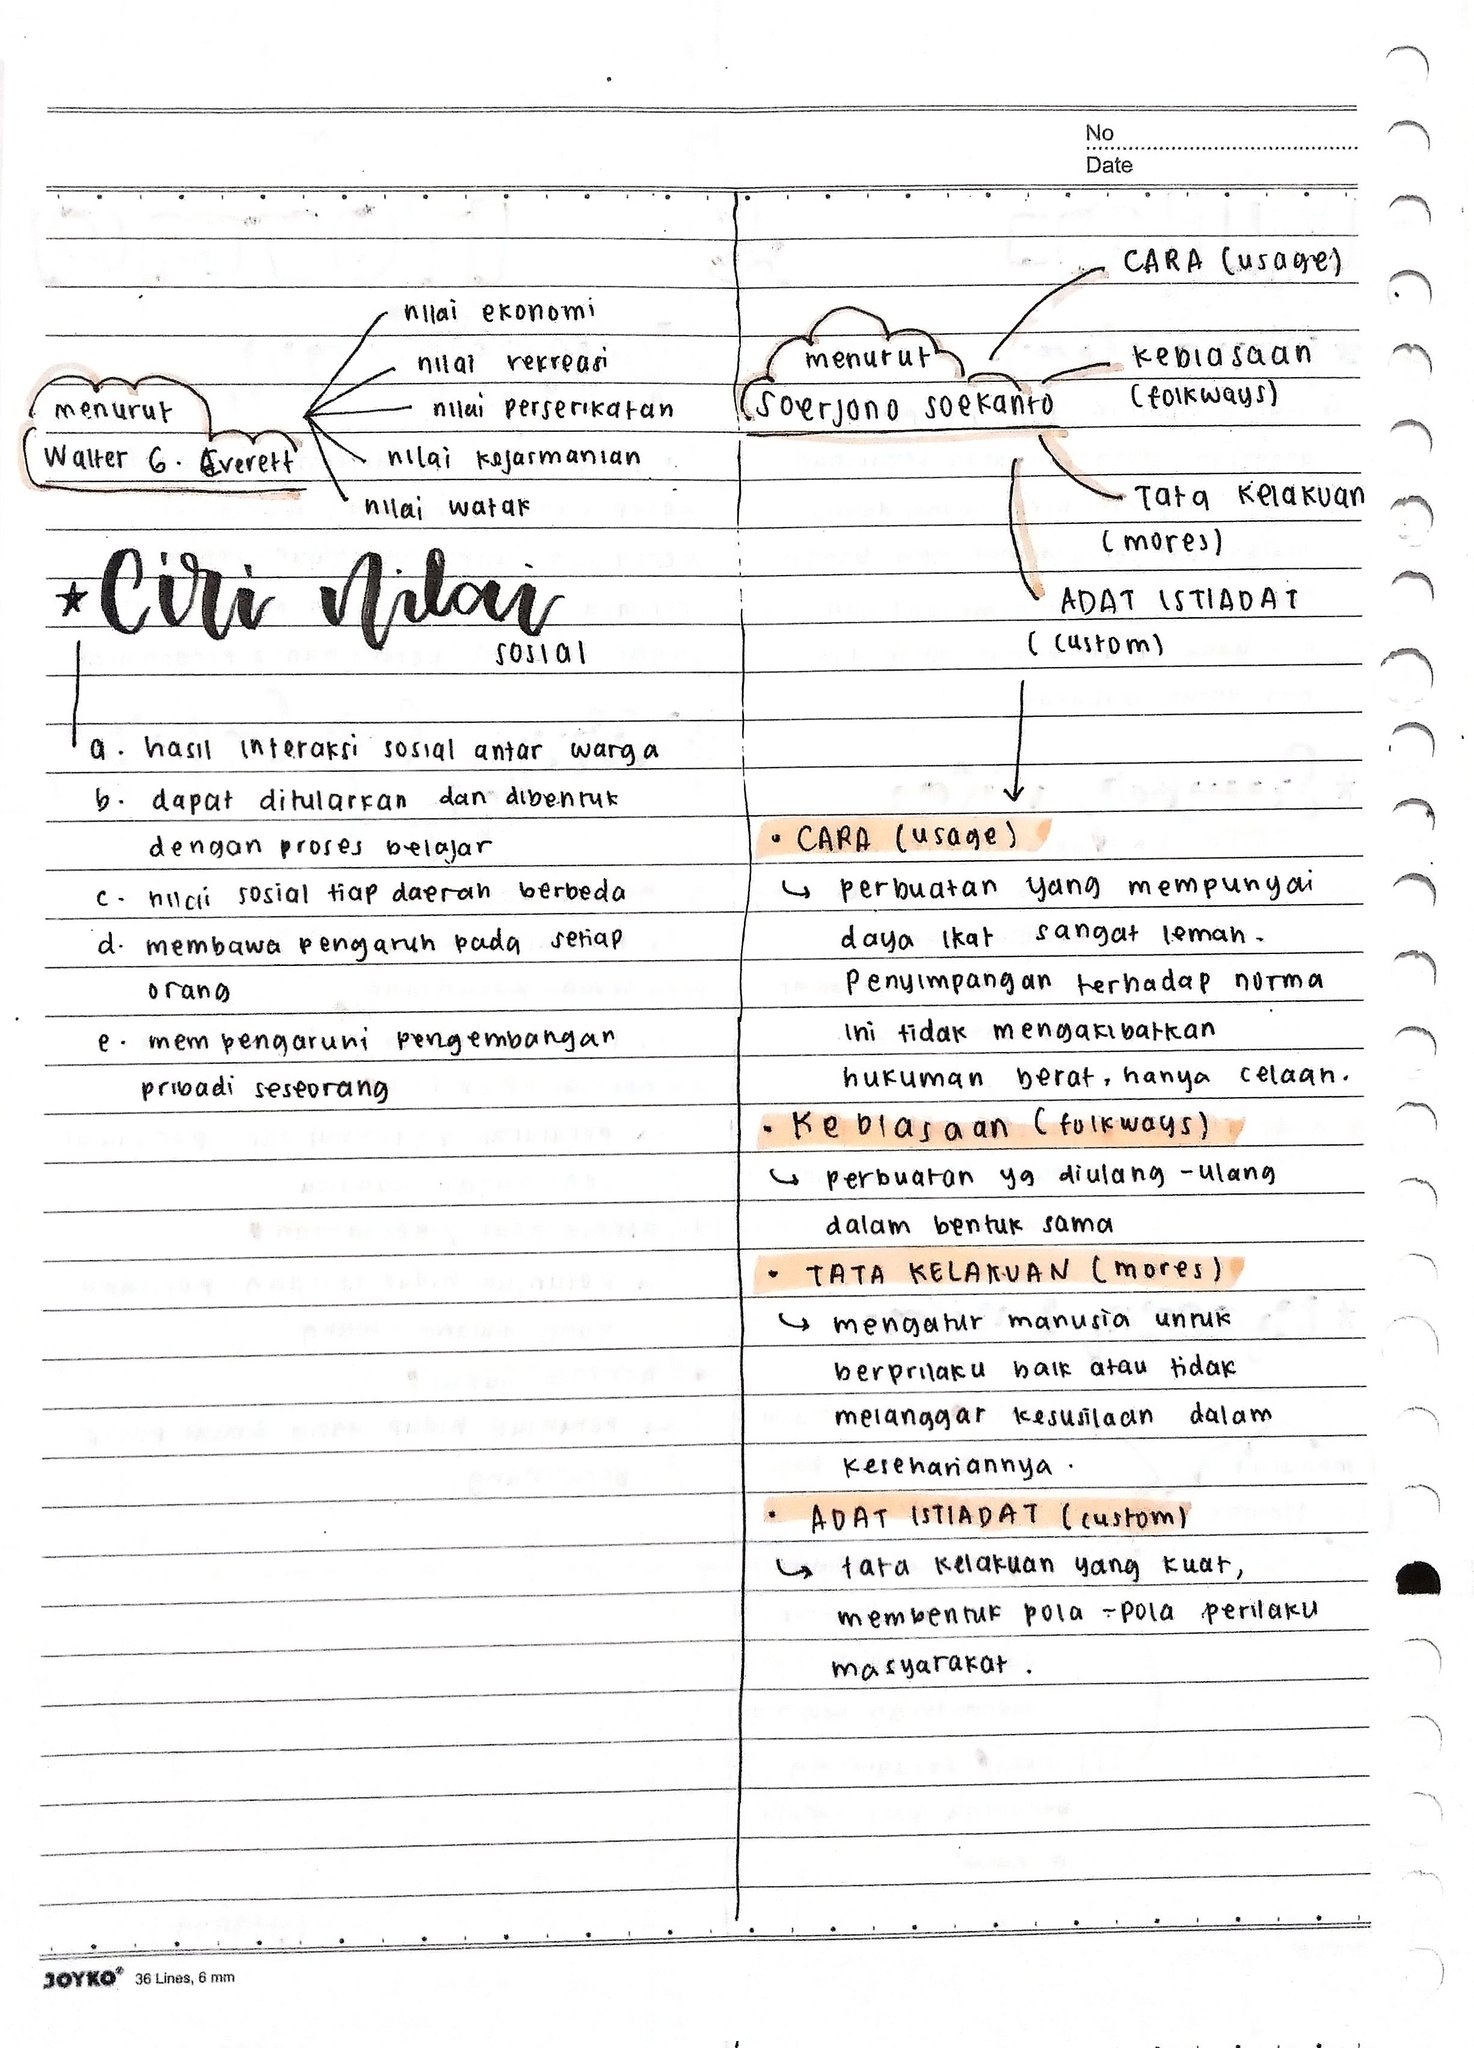 No
Date
menurut
Walter G. Everett
nilai ekonomi
nilai rekreasi
nilai perserikatan
nilai kejasmanian
nilai watak
★ Ciri Nilai
sosial
a. hasil interaksi sosial antar warga
b. dapat ditularkan dan dibentuk
dengan proses belajar
c. nilai sosial tiap daerah berbeda
d. membawa pengaruh pada setiap
orang
e. mempengaruhi pengembangan
pribadi seseorang
menurut
Soerjono Soekanto
CARA (usage)
Kebiasaan
(folkways)
Tata Kelakuan
(mores)
ADAT ISTIADAT
(custom)
• CARA (usage)
↳ perbuatan yang mempunyai
daya ikat sangat lemah.
Penyimpangan terhadap norma
ini tidak mengakibatkan
hukuman berat, hanya celaan.
• Kebiasaan (folkways)
↳ perbuatan yg diulang-ulang
dalam bentuk sama
• TATA KELAKUAN (mores)
↳ mengatur manusia untuk
berprilaku baik atau tidak
melanggar kesusilaan dalam
kesehariannya.
• ADAT ISTIADAT (custom)
↳ tata kelakuan yang kuat,
membentuk pola-pola perilaku
masyarakat.
JOYKO® 36 Lines, 6 mm